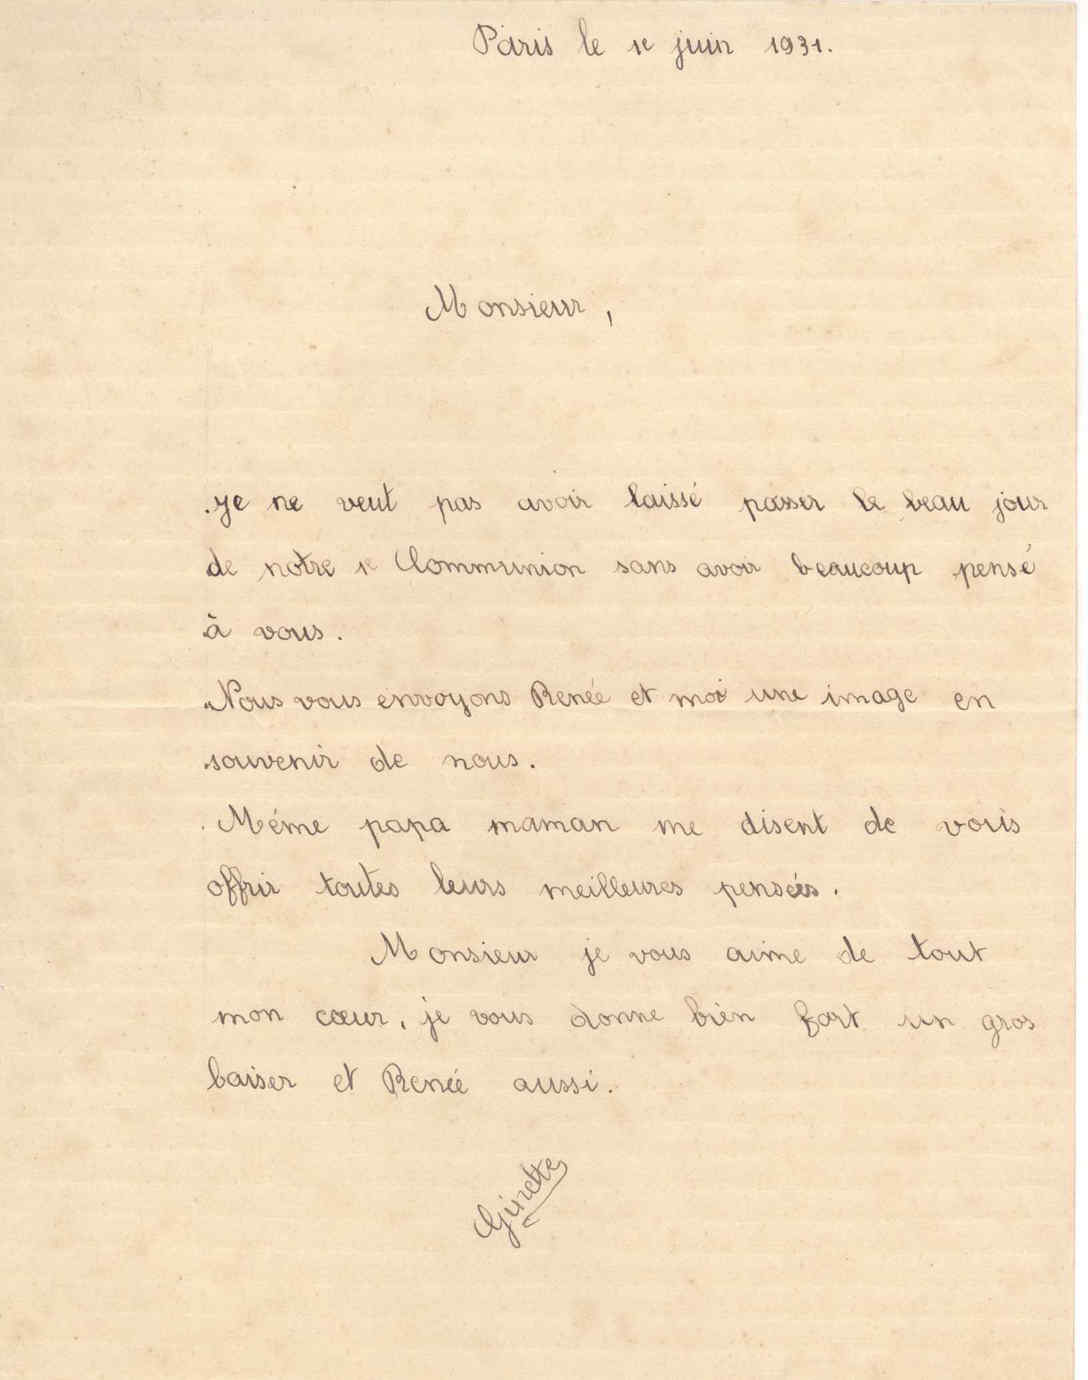 Paris le 1e juin 1931.
Monsieur,
Je ne veut pas avoir laissé passer le beau jour
de notre 1e Communion sans avoir beaucoup pensé
à vous.
Nous vous envoyons Renée et moi une image en
souvenir de nous.
Méme papa maman me disent de vous
offrir toutes leurs meilleures pensées.
Monsieur je vous aime de tout
mon cœur, je vous donne bien fort un gros
baiser et Renée aussi.
Ginette